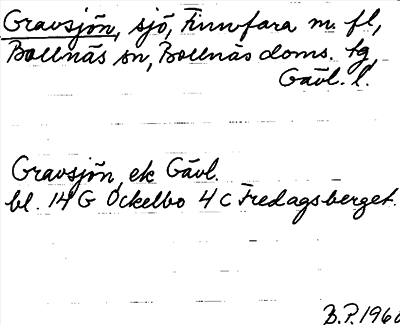 Gravsjön, sjö, Finnfara m. fl,
Bollnäs sn, Bollnäs doms. tg,
Gävl. l.
Gravsjön, ek Gävl.
bl. 14 G Ockelbo 4 c Fredagsberget.
B.P. 1960